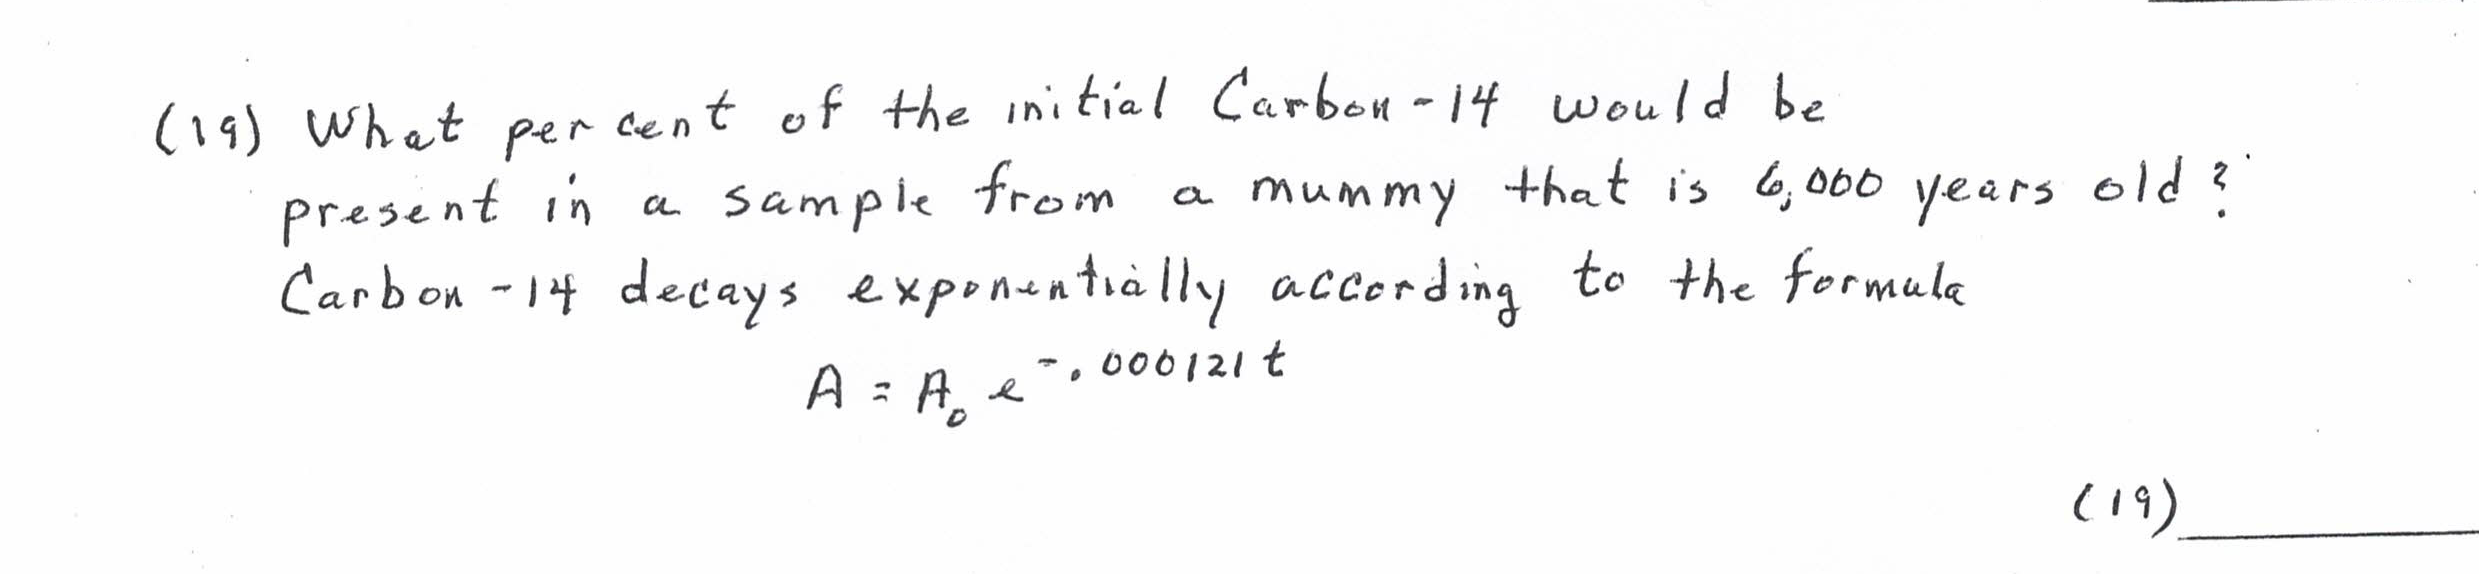 (19) What per cent of the initial Carbon-14 would be
present in a sample from a mummy that is 6,000 years old?
Carbon-14 decays exponentially according to the formula
A = A₀ e^-.000121t
(19)